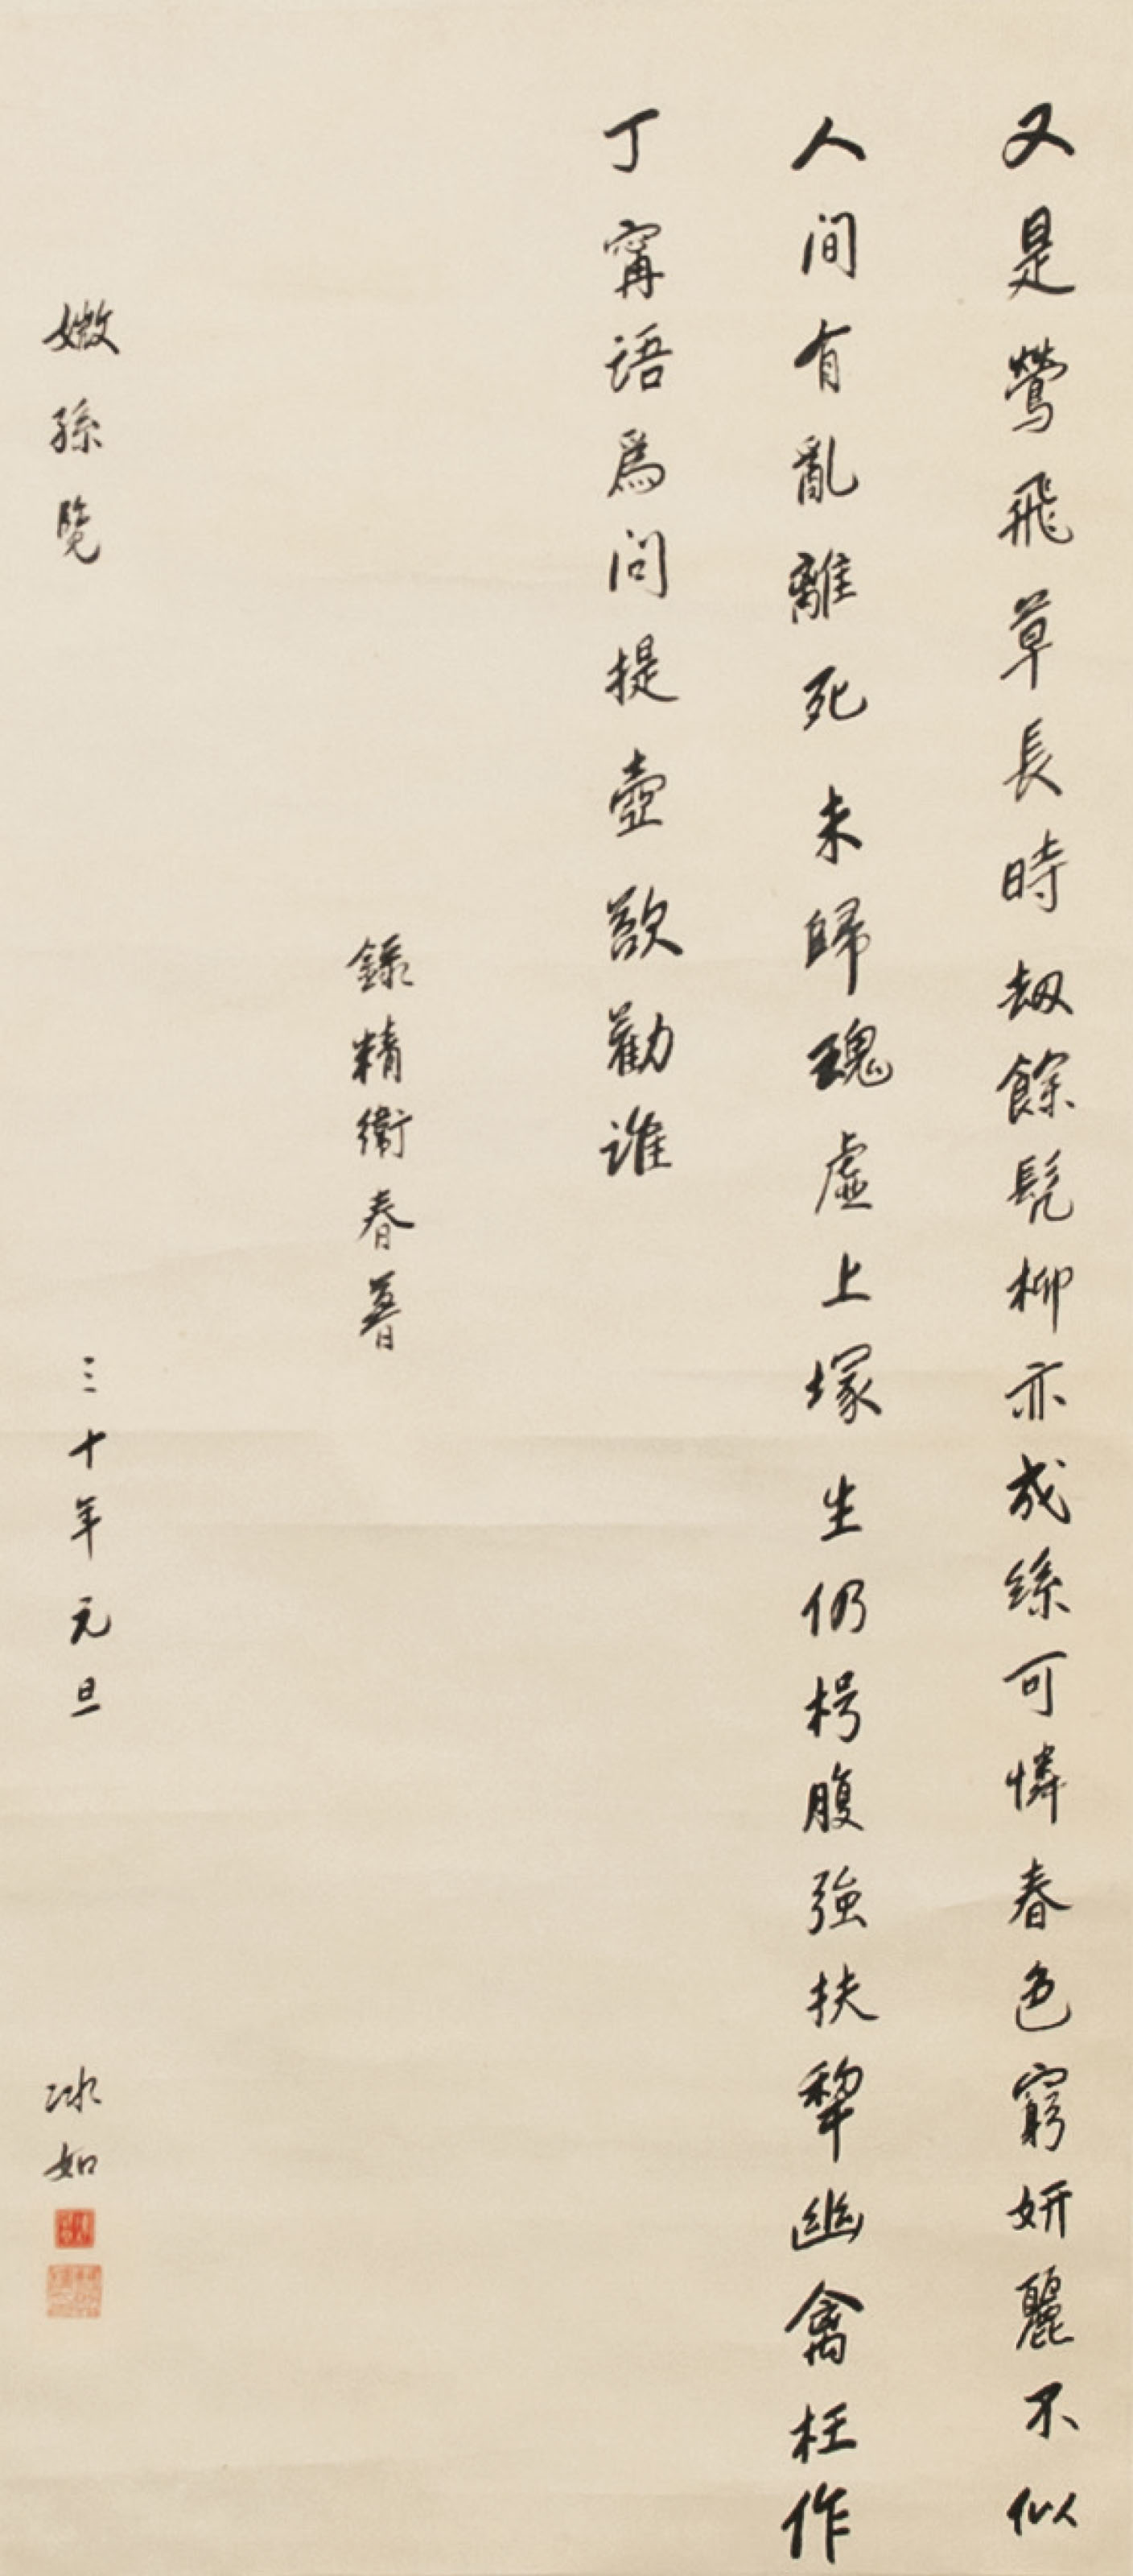 又是鶯飛草長時劫餘髡柳亦成絲可憐春色窮妍麗不似
人間有亂離死未歸魂虛上塚生仍枵腹強扶犂幽禽枉作
丁甯語爲問提壺欲勸誰
錄精衛春暮
媺孫覽
三十年元旦
冰如